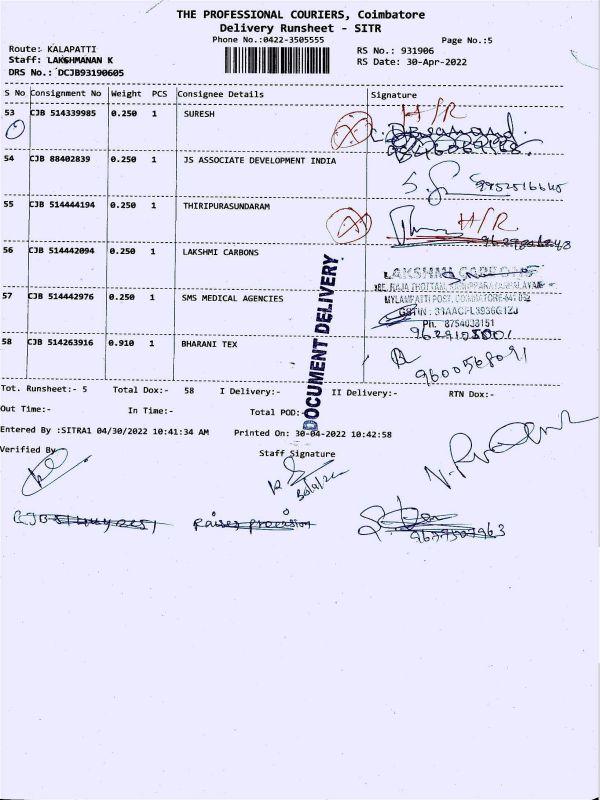 THE PROFESSIONAL COURIERS, Coimbatore
Delivery Runsheet - SITR
Phone No.:0422-3505555
Page No.:5
Route: KALAPATTI
RS No.: 931906
Staff: LAKSHMANAN K
RS Date: 30-Apr-2022
DRS No.: DCJB93190605
S No Consignment No Weight PCS Consignee Details Signature
53 CJB 514339985 0.250 1 SURESH H/R
54 CJB 88402839 0.250 1 JS ASSOCIATE DEVELOPMENT INDIA
9952516645
55 CJB 514444194 0.250 1 THIRIPURASUNDARAM H/R
56 CJB 514442094 0.250 1 LAKSHMI CARBONS
LAKSHMI CARBONS
MYLAMPATTI POST, COIMBATORE-641 062
57 CJB 514442976 0.250 1 SMS MEDICAL AGENCIES
GSTIN : 33AACFL3936G1ZU
Ph. 8754038151
58 CJB 514263916 0.910 1 BHARANI TEX
9600568091
DOCUMENT DELIVERY
Tot. Runsheet:- 5 Total Dox:- 58 I Delivery:- II Delivery:- RTN Dox:-
Out Time:- In Time:- Total POD:-
Entered By :SITRA1 04/30/2022 10:41:34 AM Printed On: 30-04-2022 10:42:58
Verified By
Staff Signature